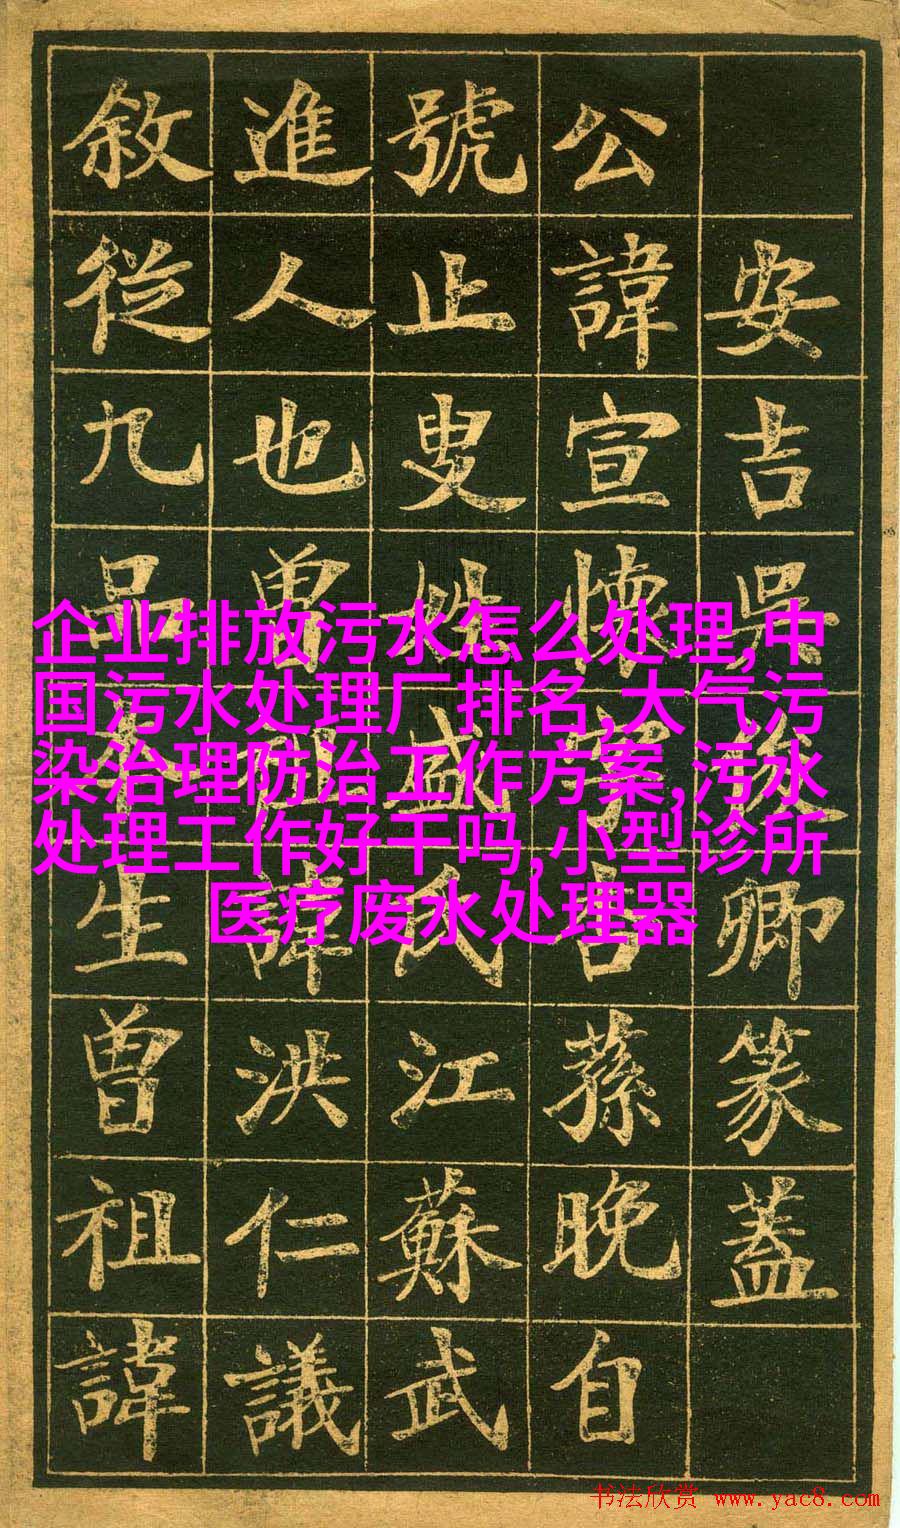 安吉吳俊卿篆蓋
公諱宣懷字杏蓀晚自
號止叟姓盛氏江蘇武
進人也曾祖諱洪仁議
敘從九品本生曾祖諱
企业排放污水怎么处理,中
国污水处理厂排名,大气污
染治理防治工作方案,污水
处理工作好干吗,小型诊所
医疗废水处理器
书法欣赏 www.yac8.com